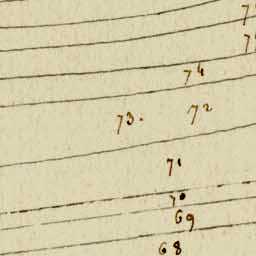 74
73.
72
71
70
69
68